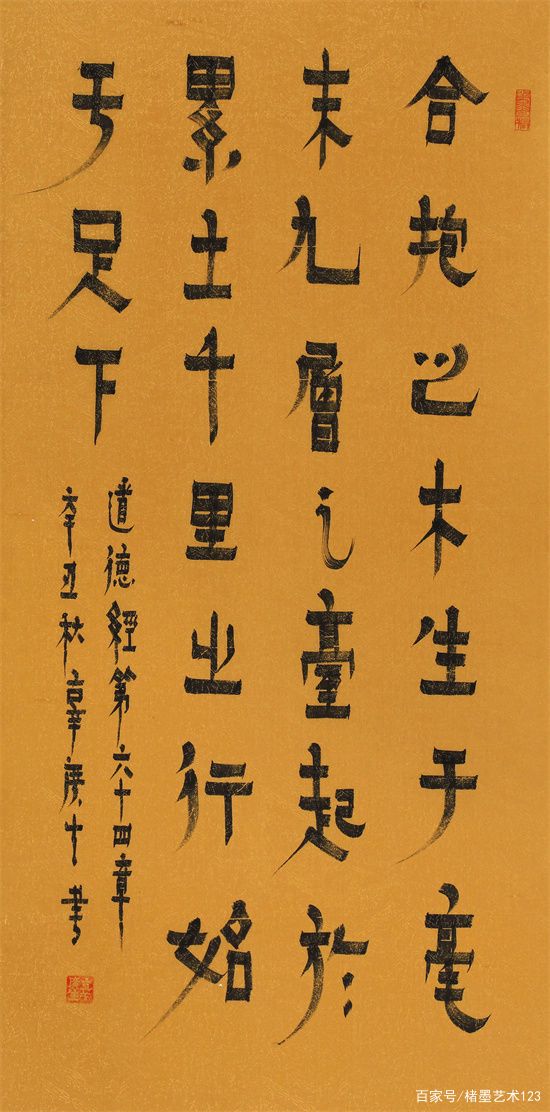 合抱之木生于毫
末九層之臺起於
累土千里之行始
于足下
道德經第六十四章
辛丑秋章庚十書
百家号/楮墨艺术123